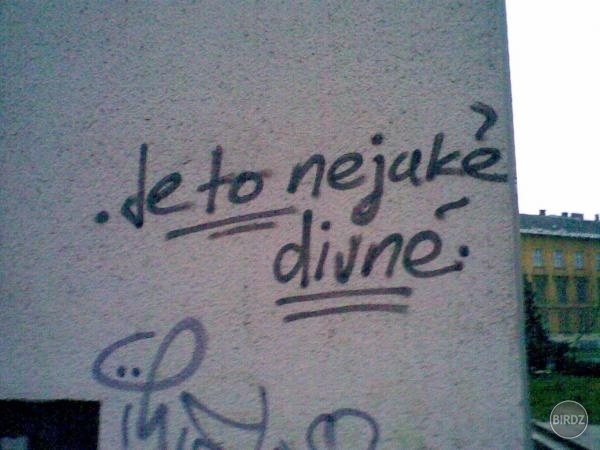 .Je to nejaké
divné.
BIRDZ